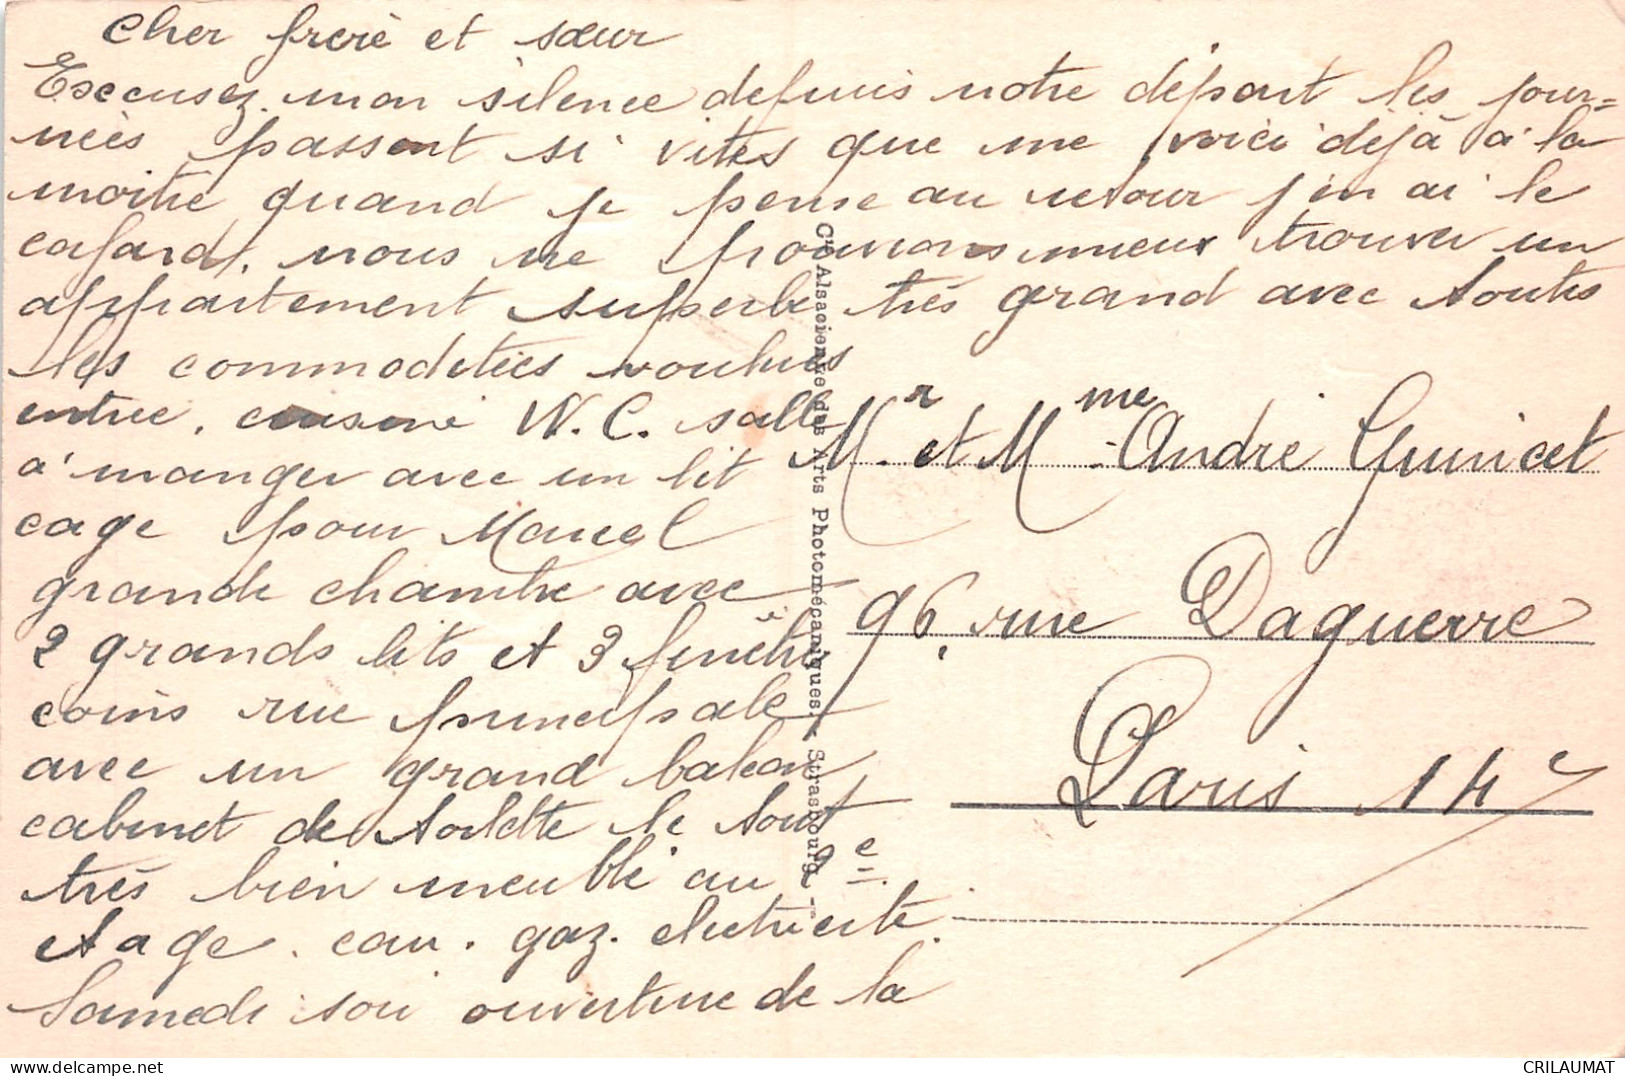 Cher frère et sœur
Excusez mon silence depuis notre départ les jour=
nées passent si vites que me voici déjà à la
moitié quand je pense au retour j'en ai le
cafard, nous ne pouvions mieux trouver un
appartement superbe très grand avec toutes
les commoditées voulues
entrée, cuisine W.C. salle
à manger avec un lit
cage pour Marcel
grande chambre avec
2 grands lits et 3 fenêtre
coins rue principale
avec un grand balcon
cabinet de toilette le tout
très bien meublé au 2e
étage. eau. gaz. électricité.
Samedi soir ouverture de la
Mr et Mme André Guinicet
96, rue Daguerre
Paris 14e
Cie Alsacienne des Arts Photomécaniques. Strasbourg
CRILAUMAT